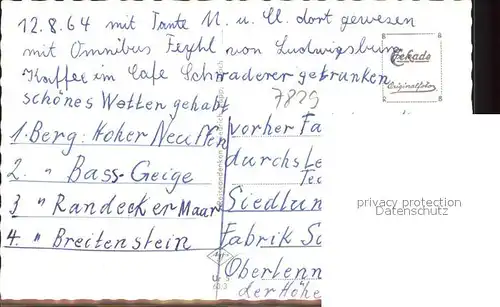 12.8.64 mit Tante M. u. Cl. dort gewesen
mit Omnibus Feyhl von Ludwigsburg
Kaffee im Cafe Schraderer getrunken
schönes Wetter gehabt
7829
Gekado
Originalfoto
1. Berg: Hoher Neuffen
2. " Bass-Geige
3 " Randecker Maar
4. " Breitenstein
vorher Fa
durchs Le
Tec
Siedlun
Fabrik Sc
Oberlenn
der Höhe
privacy protection
Datenschutz